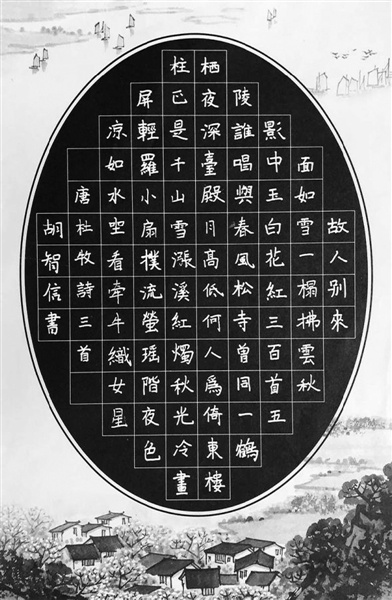 故人别來
面如雪一榻拂雲秋
影中玉白花紅三百首五
陵誰唱與春風松寺曾同一鶴
栖夜深臺殿月高低何人爲倚東樓
柱正是千山雪漲溪紅燭秋光冷畫
屏輕羅小扇撲流螢瑶階夜色
凉如水空看牽牛織女星
唐杜牧詩三首
胡智信書